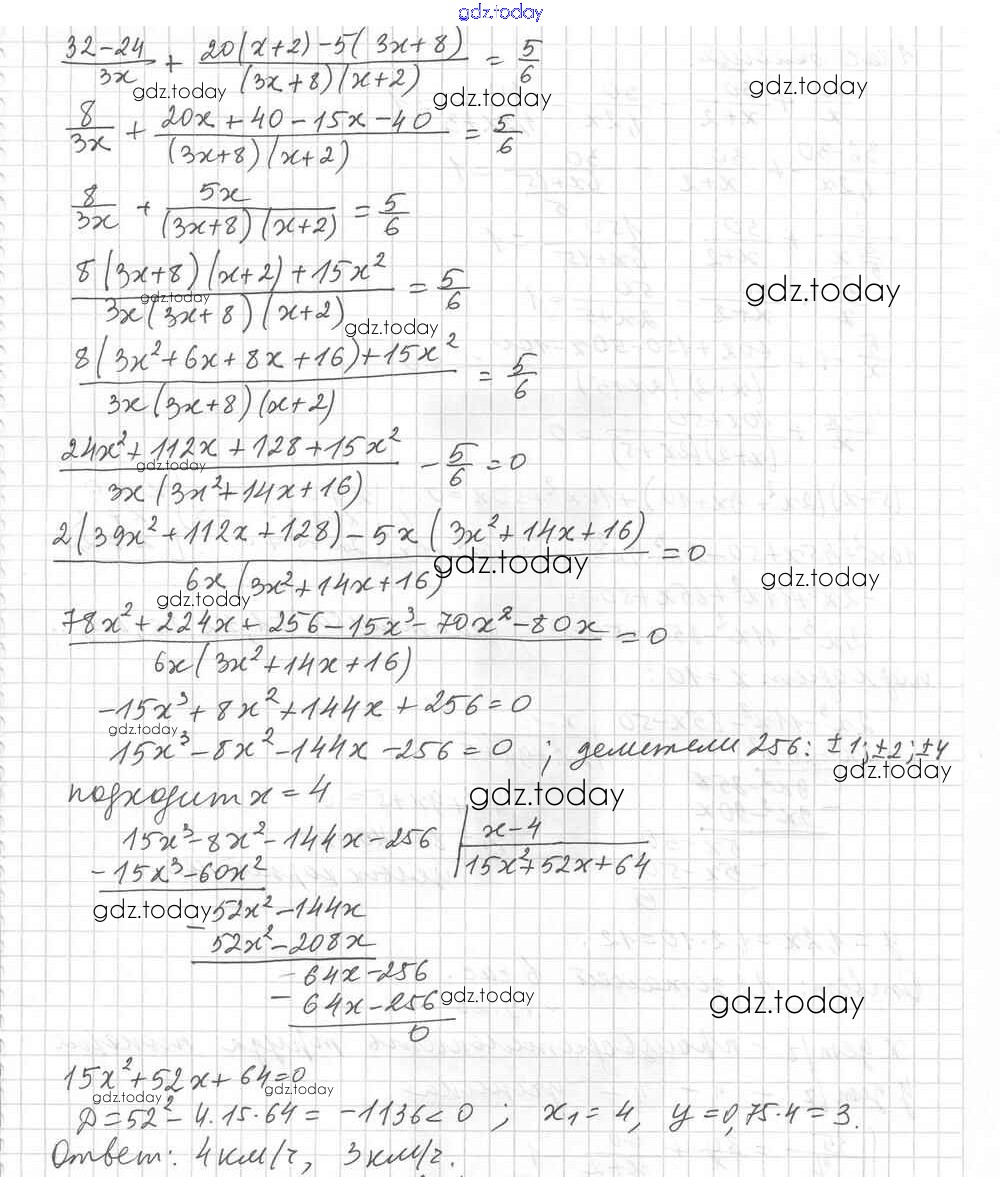 gdz.today
32-24/3x + 20(x+2)-5(3x+8)/(3x+8)(x+2) = 5/6
gdz.today gdz.today gdz.today
8/3x + 20x+40-15x-40/(3x+8)(x+2) = 5/6
8/3x + 5x/(3x+8)(x+2) = 5/6
8(3x+8)(x+2)+15x²/3x(3x+8)(x+2) = 5/6
gdz.today gdz.today gdz.today
8(3x²+6x+8x+16)+15x²/3x(3x+8)(x+2) = 5/6
24x²+112x+128+15x²/3x(3x²+14x+16) - 5/6 = 0
gdz.today
2(39x²+112x+128)-5x(3x²+14x+16)/6x(3x²+14x+16) = 0
gdz.today gdz.today gdz.today
78x²+224x+256-15x³-70x²-80x/6x(3x²+14x+16) = 0
-15x³+8x²+144x+256=0
gdz.today
15x³-8x²-144x-256=0 ; делители 256: ±1;±2;±4
gdz.today
подходит x=4
gdz.today
15x³-8x²-144x-256 | x-4
-15x³-60x² | 15x²+52x+64
gdz.today 52x²-144x
- 52x²-208x
64x-256
- 64x-256
gdz.today gdz.today
0
15x²+52x+64=0
gdz.today gdz.today
D=52²-4.15·64=-1136<0 ; x₁=4, y=0,75·4=3.
Ответ: 4км/ч, 3км/ч.